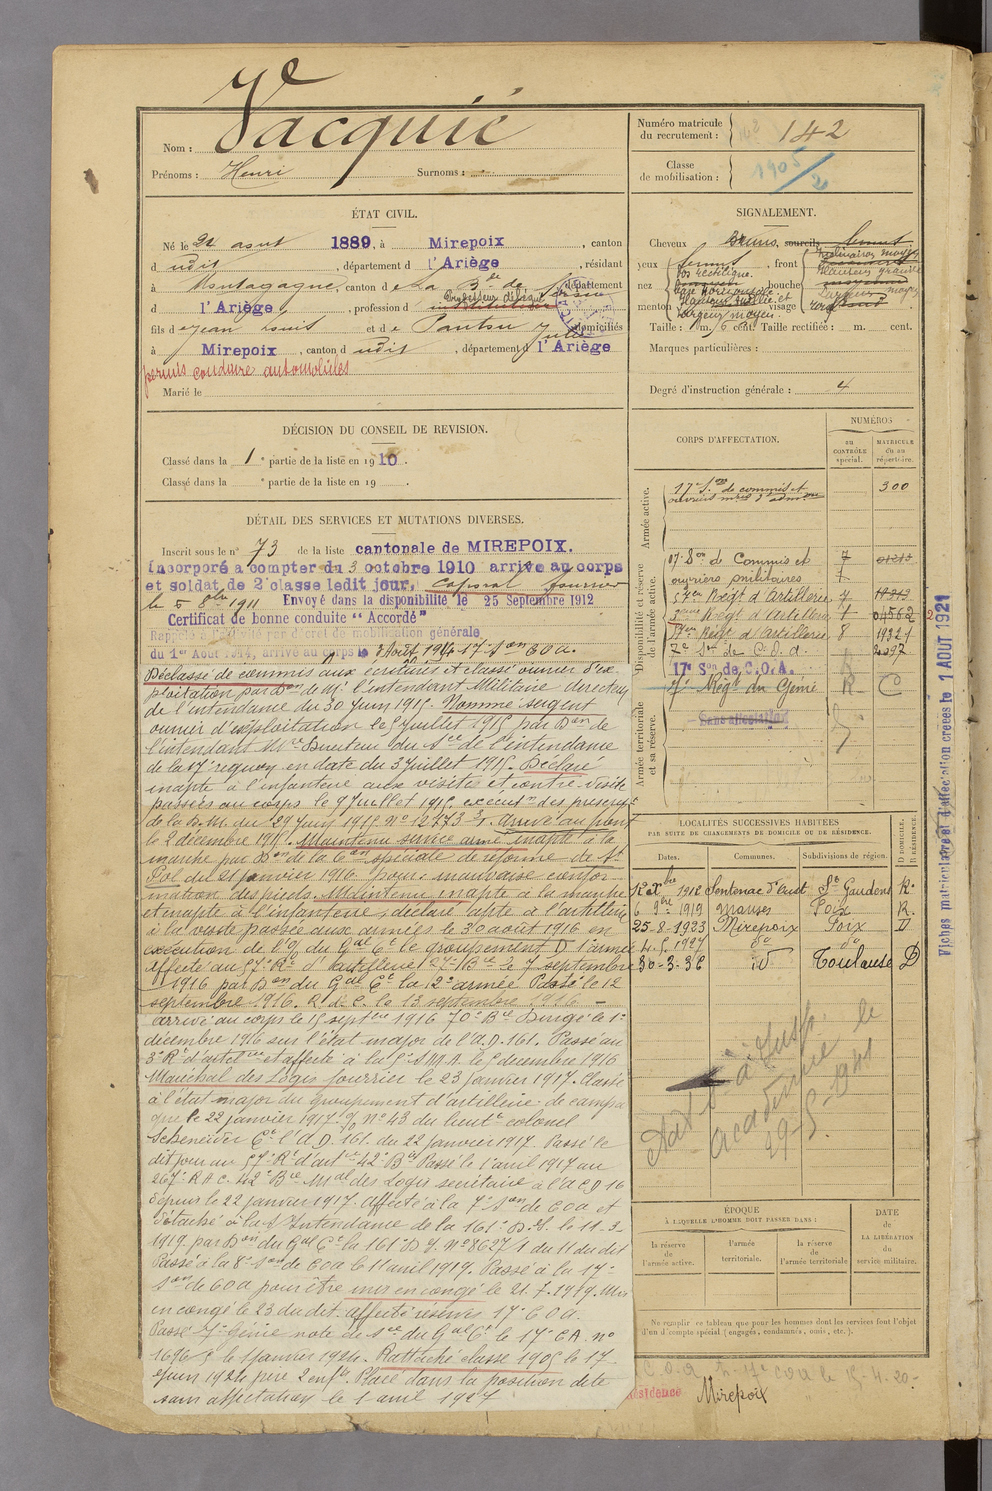 Nom : Vacquié
Prénoms : Henri Surnoms :
Numéro matricule du recrutement : 142
Classe de mobilisation : 1905/2
ÉTAT CIVIL.
Né le 22 août 1889, à Mirepoix, canton
d udit, département d l'Ariège, résidant
à Montagagne, canton de La , département
d l'Ariège, profession d instituteur
fils de Jean Louis et de Pautou Julie domiciliés
à Mirepoix, canton d udit, département d l'Ariège
permis conduire automobiles
Marié le
DÉCISION DU CONSEIL DE REVISION.
Classé dans la 1e partie de la liste en 1910.
Classé dans la e partie de la liste en 19 .
DÉTAIL DES SERVICES ET MUTATIONS DIVERSES.
Inscrit sous le n° 73 de la liste cantonale de MIREPOIX.
Incorporé à compter du 3 octobre 1910 arrivé au corps
et soldat de 2e classe ledit jour. caporal fourrier
le 5 8bre 1911 Envoyé dans la disponibilité le 25 Septembre 1912
Certificat de bonne conduite "Accordé"
Rappelé à l'activité par décret de mobilisation générale
du 1er Août 1914, arrivé au corps le 3 Août 1914 17e Son C.O.A.
Déclassé de commis aux écritures et classé ouvrier d'ex-
ploitation par Don de Mr l'intendant Militaire directeur
de l'intendance du 30 juin 1915. Nommé sergent
ouvrier d'exploitation le 5 juillet 1915 par Don de
l'intendant Mre Directeur du Sce de l'intendance
de la 17e région en date du 3 Juillet 1915. Déclaré
inapte à l'infanterie aux visite et contre-visite
passées au corps le 9 Juillet 1915. exécutn des prescrips
de la D.M. du 29 Juin 1915 N° 12773 3/1. Arrivé au front
le 2 décembre 1915. Maintenu service armé inapte à la
marche par Don de la Con spéciale de réforme de St
Pol du 21 janvier 1916 pour: mauvaise confor-
mation des pieds. Maintenu inapte à la marche
et inapte à l'infanterie; déclaré apte à l'artillerie
à la visite passée aux armées le 30 août 1916 en
exécution de l'O/ du Gal Ct le groupement D 1 armée
affecté au 57e Rt d'artillerie 27e Bie le 7 septembre
1916 par Don du Gal Ct la 12e armée. Passé le 12
septembre 1916. R. de C. le 13 septembre 1916 —
arrivé au corps le 15 septbre 1916 70e Bie Dirigé le 1er
décembre 1916 sur l'état major de l'A.D. 161. Passé au
3e Rt d'artcol et affecté à la 5e S.M.A. le 5 decembre 1916
Maréchal des Logis fourrier le 23 janvier 1917. Classé
à l'état major du groupement d'artillerie de campa
gne le 22 janvier 1917 O/ N° 43 du lieutt colonel
Schneider Ct l'A.D. 161. du 22 janvier 1917. Passé le
dit jour au 57e Rt d'art 42e Bie Passé le 1er avril 1917 au
267e RAC. 42e Bie Mal des Logis secrétaire à l'ACD 16
depuis le 22 janvier 1917. affecté à la 7e Son de COA et
détaché à la S/Intendance de la 161e D.I. le 11.3.
1919. par Don du Gal Ct la 161e D.I. N° 8627/1 du 11 du dit
Passé à la 8e Son de COA le 1er avril 1919. Passé à la 17e
Son de COA pour être mis en congé le 21.7.1919. Mis
en congé le 23 du dit. affecté réserves 17e COA.
Passé 7e Génie note de Sce du Gal Ct le 17e CA. N°
1696 le 1 janvier 1924. Rattaché classe 1905 le 17
juin 1924 père 2 enfts. Placé dans la position dite
sans affectation le 1 avril 1927
SIGNALEMENT.
Cheveux bruns, sourcils
yeux , front
nez rectiligne , bouche
menton , visage
Taille : 1 m. 6 cent. Taille rectifiée : m. cent.
Marques particulières :
Degré d'instruction générale : 4
CORPS D'AFFECTATION.
NUMÉROS
au CONTRÔLE spécial.
MATRICULE ou au répertoire.
Armée active.
17e Son de commis et 300
ouvriers mres d'admon
Disponibilité et réserve de l'armée active.
17e Son de Commis et 7
ouvriers militaires
57me Régt d'Artillerie 7
3me Régt d'Artillerie 1 04562
57me Régt d'Artillerie 8 19321
7e Son de C.O.A. 2097
17e Son de C.O.A.
7e Régt du Génie R C
Armée territoriale et sa réserve.
Sans affectation
LOCALITÉS SUCCESSIVES HABITÉES
PAR SUITE DE CHANGEMENTS DE DOMICILE OU DE RÉSIDENCE.
Dates. Communes. Subdivisions de région. D DOMICILE. R RÉSIDENCE.
12 Xbre 1912 Sentenac d'Oust St Gaudens R.
6 9bre 1919 Manses Foix R.
25-8-1923 Mirepoix Foix D
4.5.1927 do do
30-3-36 id Toulouse D
à Insp. académie le 29-5-1941
ÉPOQUE
À LAQUELLE L'HOMME DOIT PASSER DANS :
la réserve de l'armée active.
l'armée territoriale.
la réserve de l'armée territoriale
DATE de LA LIBÉRATION du service militaire.
Ne remplir ce tableau que pour les hommes dont les services font l'objet
d'un décompte spécial (engagés, condamnés, omis, etc.).
Résidence Mirepoix
Fiches matriculaire et d'affectation créées le 1 AOUT 1921